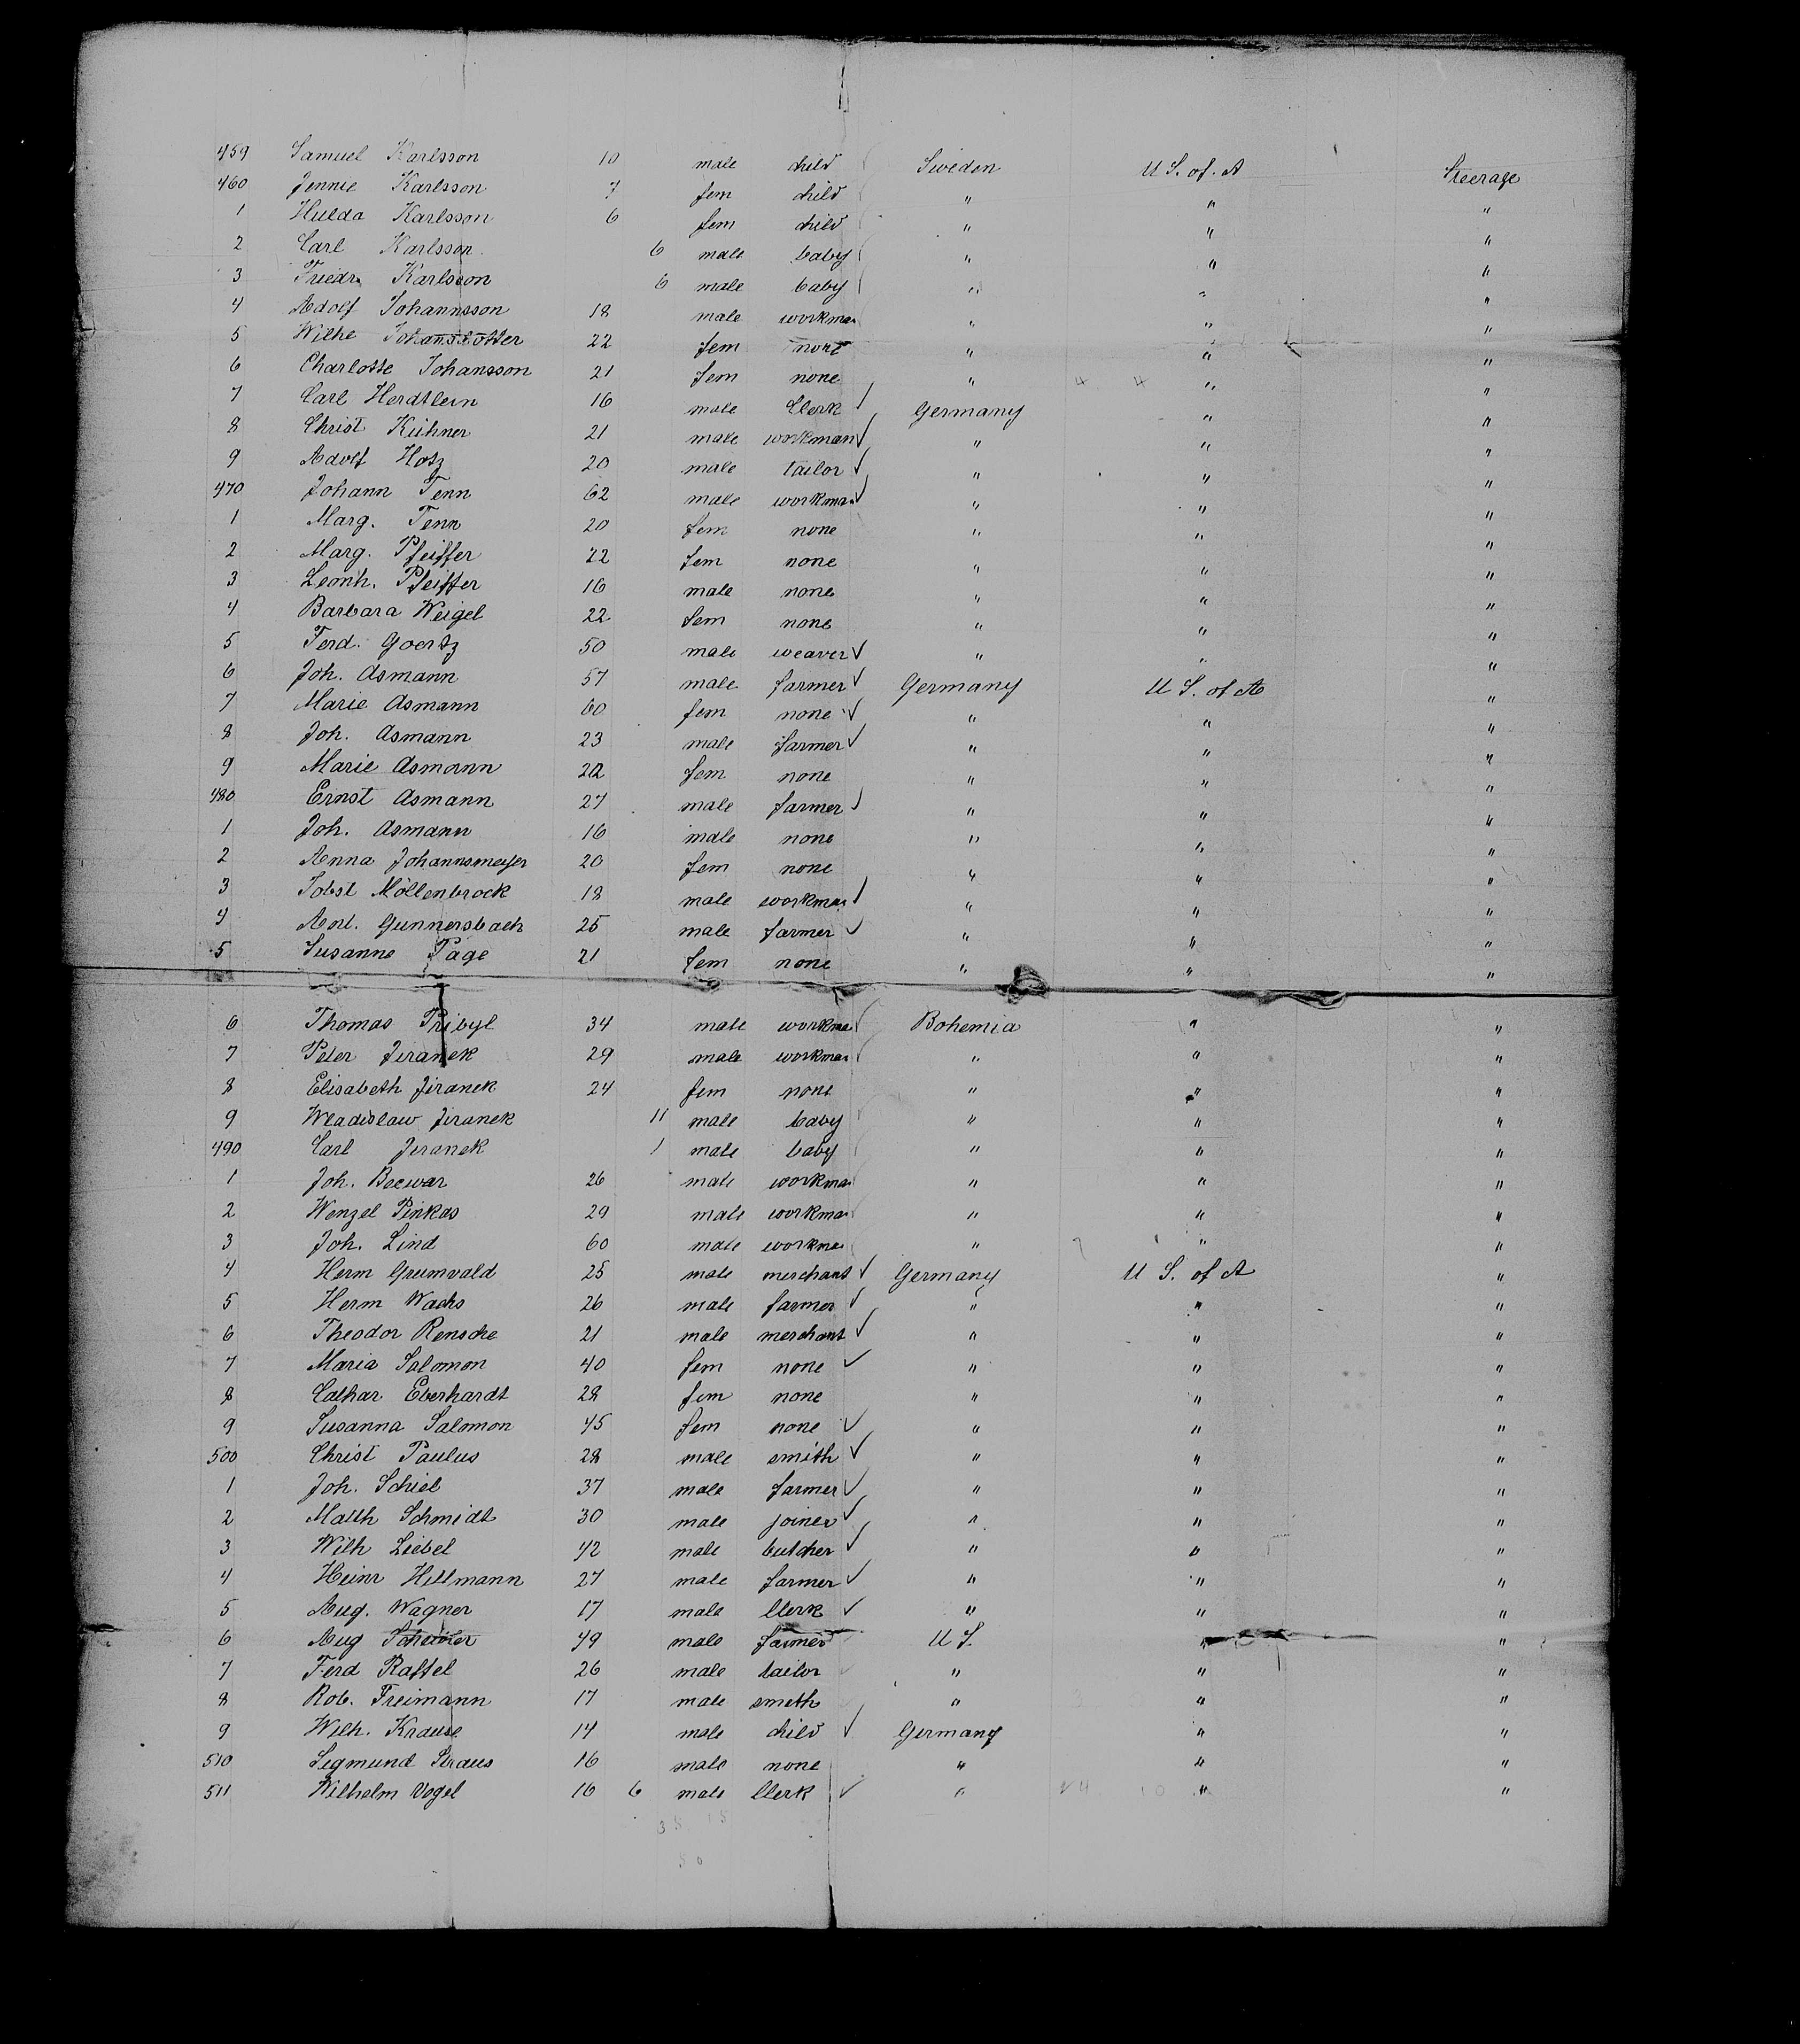 459 Samuel Karlsson 10 male child Sweden U S. of. A Steerage
460 Jennie Karlsson 7 fem child " " "
1 Hulda Karlsson 6 fem child " " "
2 Carl Karlsson 6 male baby " " "
3 Friedr. Karlsson 6 male baby " " "
4 Adolf Johannsson 18 male workman " " "
5 Wilhe Johansdotter 22 fem none " " "
6 Charlotte Johansson 21 fem none " 4 4 " "
7 Carl Herdtlein 16 male Clerk ✓ Germany " "
8 Christ Kühner 21 male workman ✓ " " "
9 Adolf Hotz 20 male tailor ✓ " " "
470 Johann Tenn 62 male workman ✓ " " "
1 Marg. Tenn 20 fem none " " "
2 Marg. Pfeiffer 22 fem none " " "
3 Leonh. Pfeiffer 16 male none " " "
4 Barbara Weigel 22 fem none " " "
5 Ferd. Goertz 50 male weaver ✓ " " "
6 Joh. Asmann 57 male farmer ✓ Germany U S. of A "
7 Marie Asmann 60 fem none ✓ " " "
8 Joh. Asmann 23 male farmer ✓ " " "
9 Marie Asmann 22 fem none " " "
480 Ernst Asmann 27 male farmer ✓ " " "
1 Joh. Asmann 16 male none " " "
2 Anna Johannsmeyer 20 fem none " " "
3 Jobst Möllenbrock 18 male workman ✓ " " "
4 Ant. Gunnersbach 25 male farmer ✓ " " "
5 Susanne Page 21 fem none " " "
6 Thomas Pribyl 34 male workman Bohemia " "
7 Peter Jiranek 29 male workman " " "
8 Elisabeth Jiranek 24 fem none " " "
9 Wladislaw Jiranek 11 male baby " " "
490 Carl Jiranek 1 male baby " " "
1 Joh. Beewar 26 male workman " " "
2 Wenzel Pinkas 29 male workman " " "
3 Joh. Lind 60 male workman " " "
4 Herm Grumvald 25 male merchant ✓ Germany U S. of A "
5 Herm Wachs 26 male farmer ✓ " " "
6 Theodor Rensche 21 male merchant ✓ " " "
7 Maria Salomon 40 fem none ✓ " " "
8 Cathar Eberhardt 28 fem none " " "
9 Susanna Salomon 45 fem none ✓ " " "
500 Christ Paulus 28 male smith ✓ " " "
1 Joh. Schiel 37 male farmer ✓ " " "
2 Matth Schmidt 30 male joiner ✓ " " "
3 Wilh Liebel 42 male butcher ✓ " " "
4 Heinr Hillmann 27 male farmer ✓ " " "
5 Aug. Wagner 17 male Clerk ✓ " " "
6 Aug 49 male farmer U S. " "
7 Ferd Raffel 26 male tailor " " "
8 Rob. Freimann 17 male smith " " "
9 Wilh. Krause 14 male child ✓ Germany " "
510 Sigmund Straus 16 male none " " "
511 Wilhelm Vogel 16 6 male Clerk ✓ " 24 10 " "
35 15
50